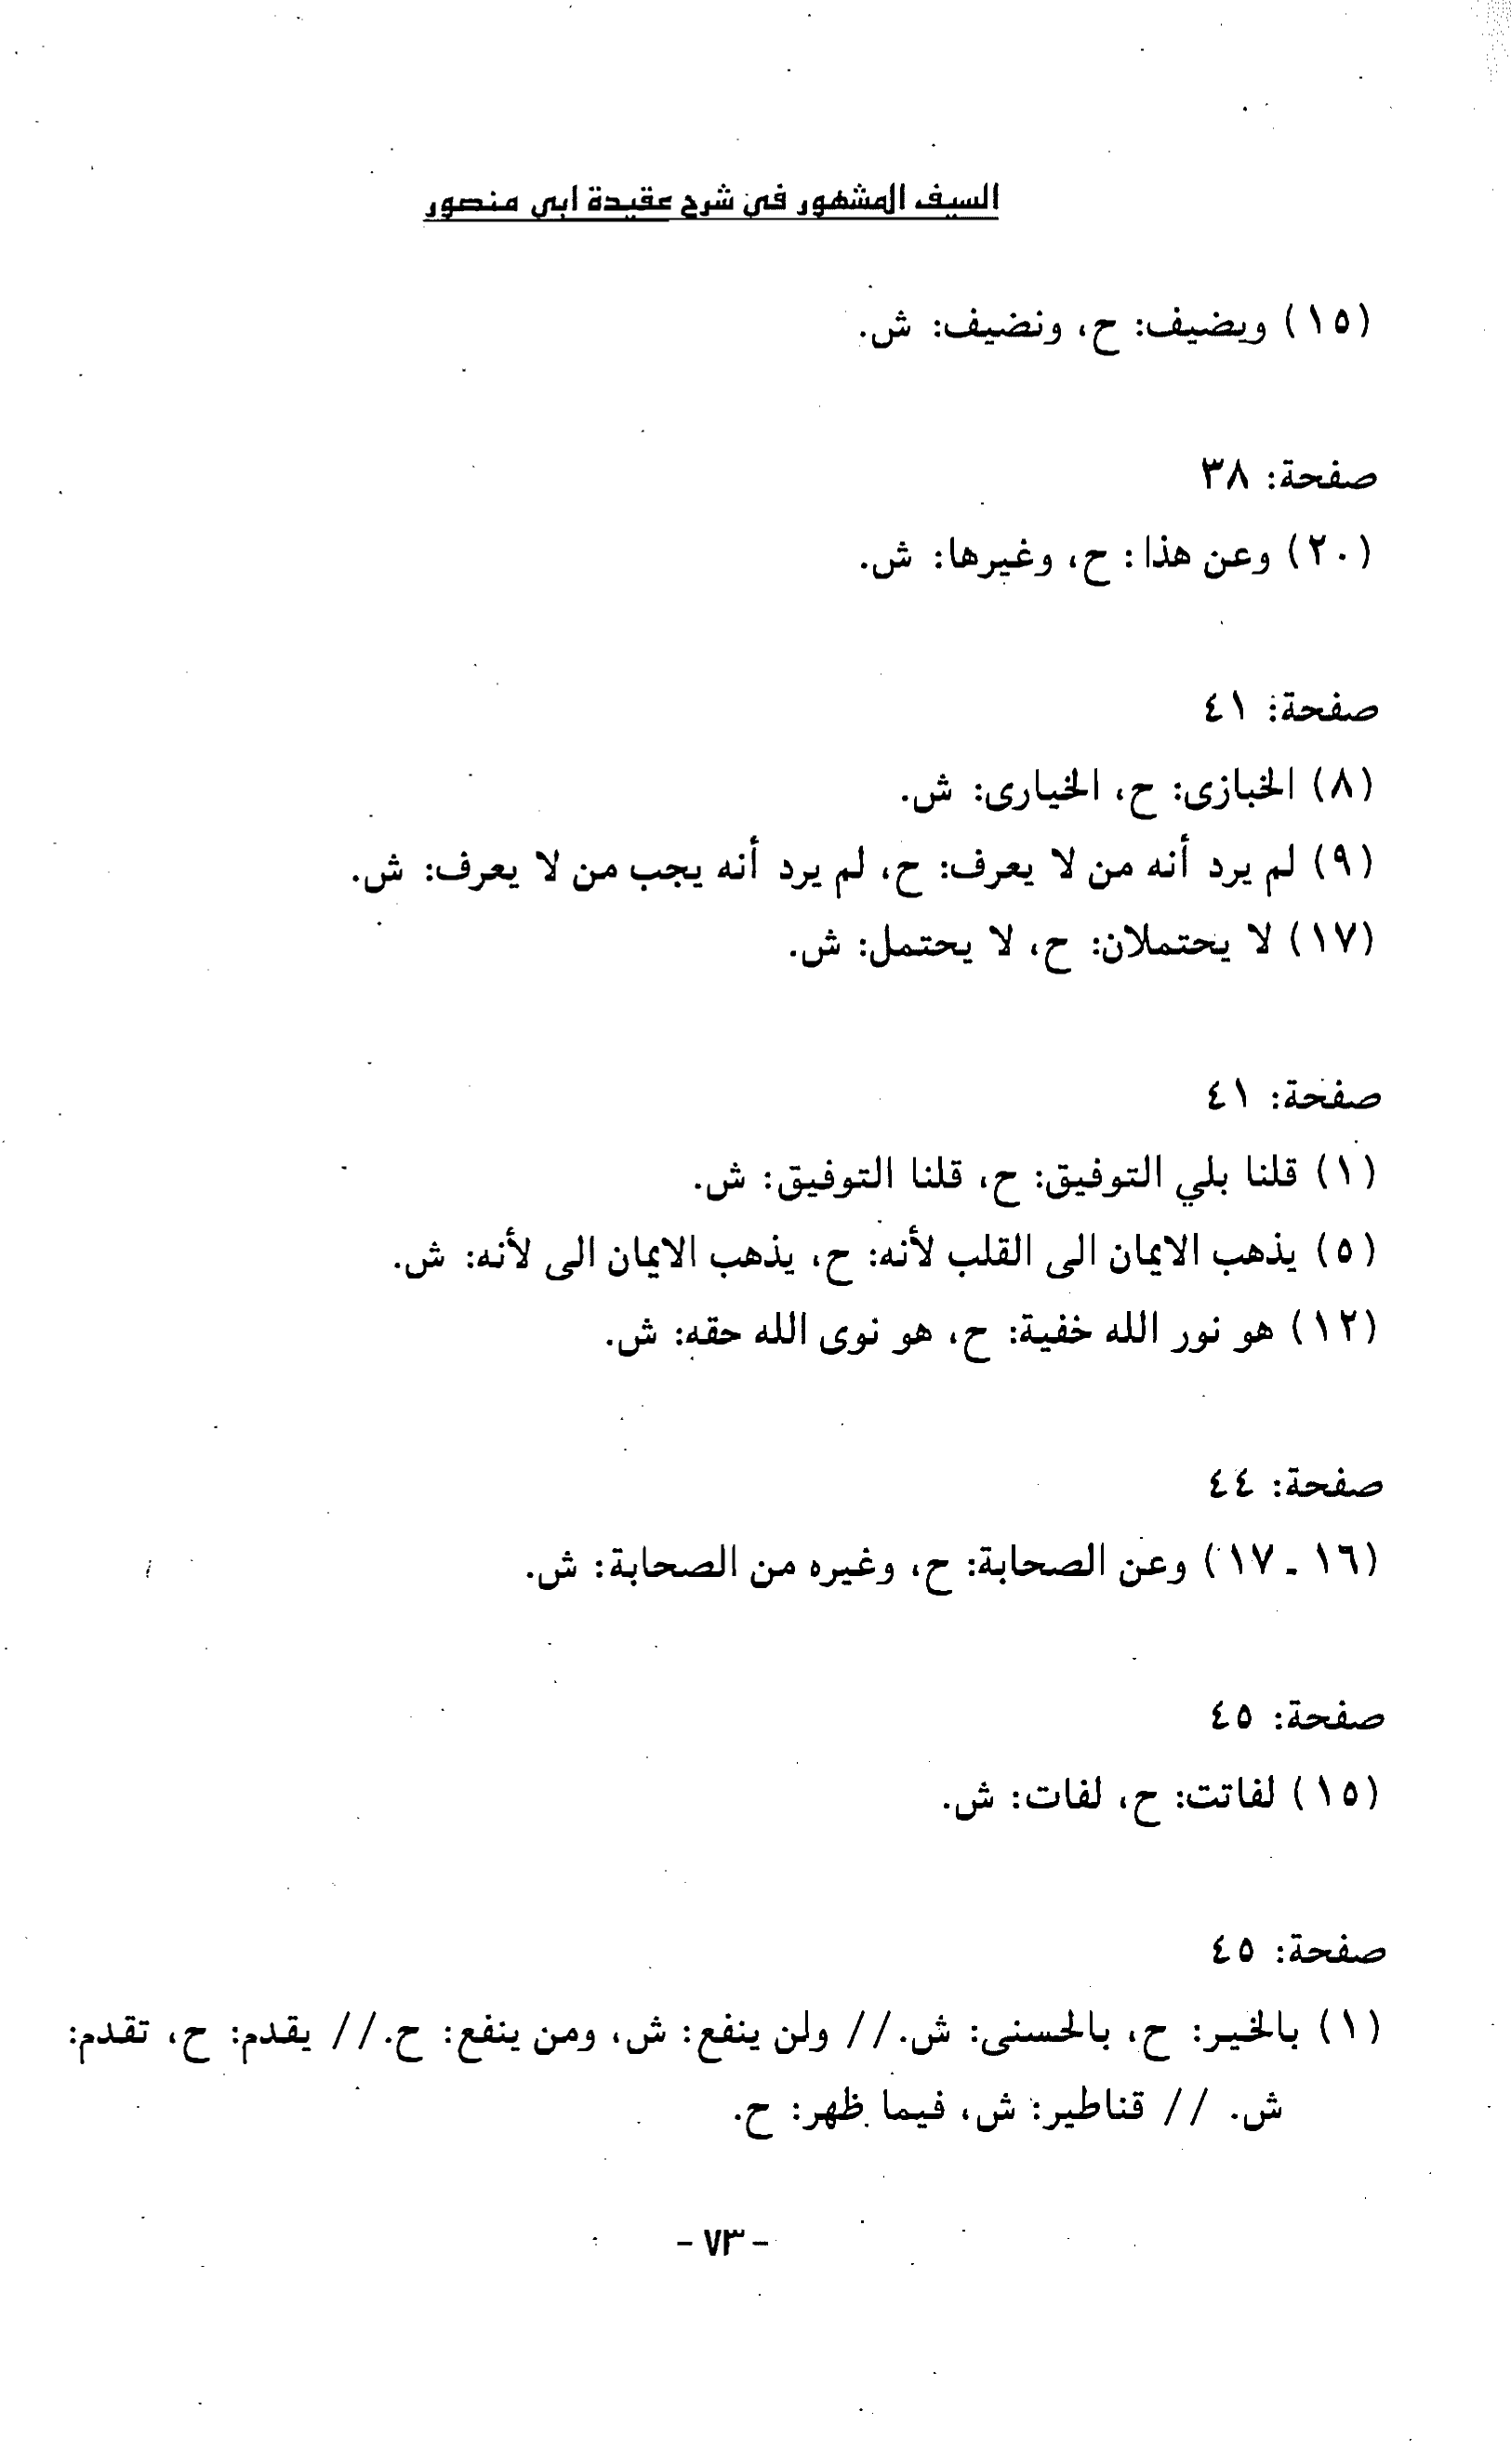 السيف المشهور في شرح عقيدة ابي منصور
(١٥) ويضيف: ح، ونضيف: ش.
صفحة: ٣٨
(٢٠) وعن هذا: ح، وغيرها: ش.
صفحة: ٤١
(٨) الخبازى: ح، الخيارى: ش.
(٩) لم يرد أنه من لا يعرف: ح، لم يرد أنه يجب من لا يعرف: ش.
(١٧) لا يحتملان: ح، لا يحتمل: ش.
صفحة: ٤١
(١) قلنا بلي التوفيق: ح، قلنا التوفيق: ش.
(٥) يذهب الايمان الى القلب لأنه: ح، يذهب الايمان الى لأنه: ش.
(١٢) هو نور الله خفية: ح، هو نوى الله حقه: ش.
صفحة: ٤٤
(١٦ - ١٧) وعن الصحابة: ح، وغيره من الصحابة: ش.
صفحة: ٤٥
(١٥) لفاتت: ح، لفات: ش.
صفحة: ٤٥
(١) بالخير: ح، بالحسنى: ش.// ولن ينفع: ش، ومن ينفع: ح.// يقدم: ح، تقدم:
ش. // قناطير: ش، فيما ظهر: ح.
- ٧٣ -